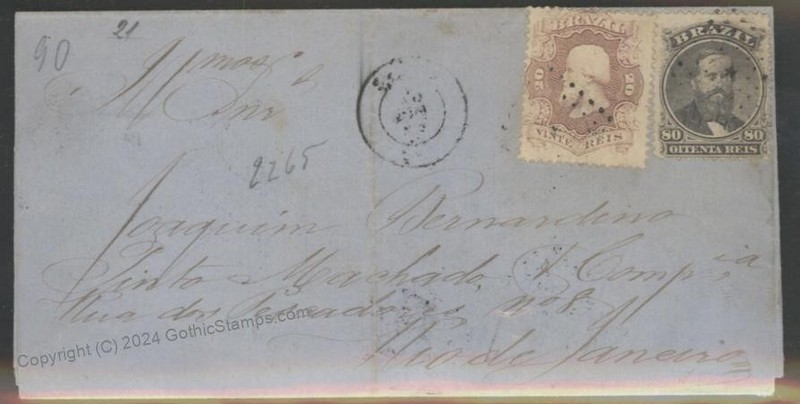 21
90
BRAZIL
20 20
VINTE REIS
BRAZIL
80 80
OITENTA REIS
2265
Joaquim Bernardino
Pinto Machado & Comp.ia
Rua dos Pescadores nº 8
Rio de Janeiro
Copyright (C) 2024 GothicStamps.com